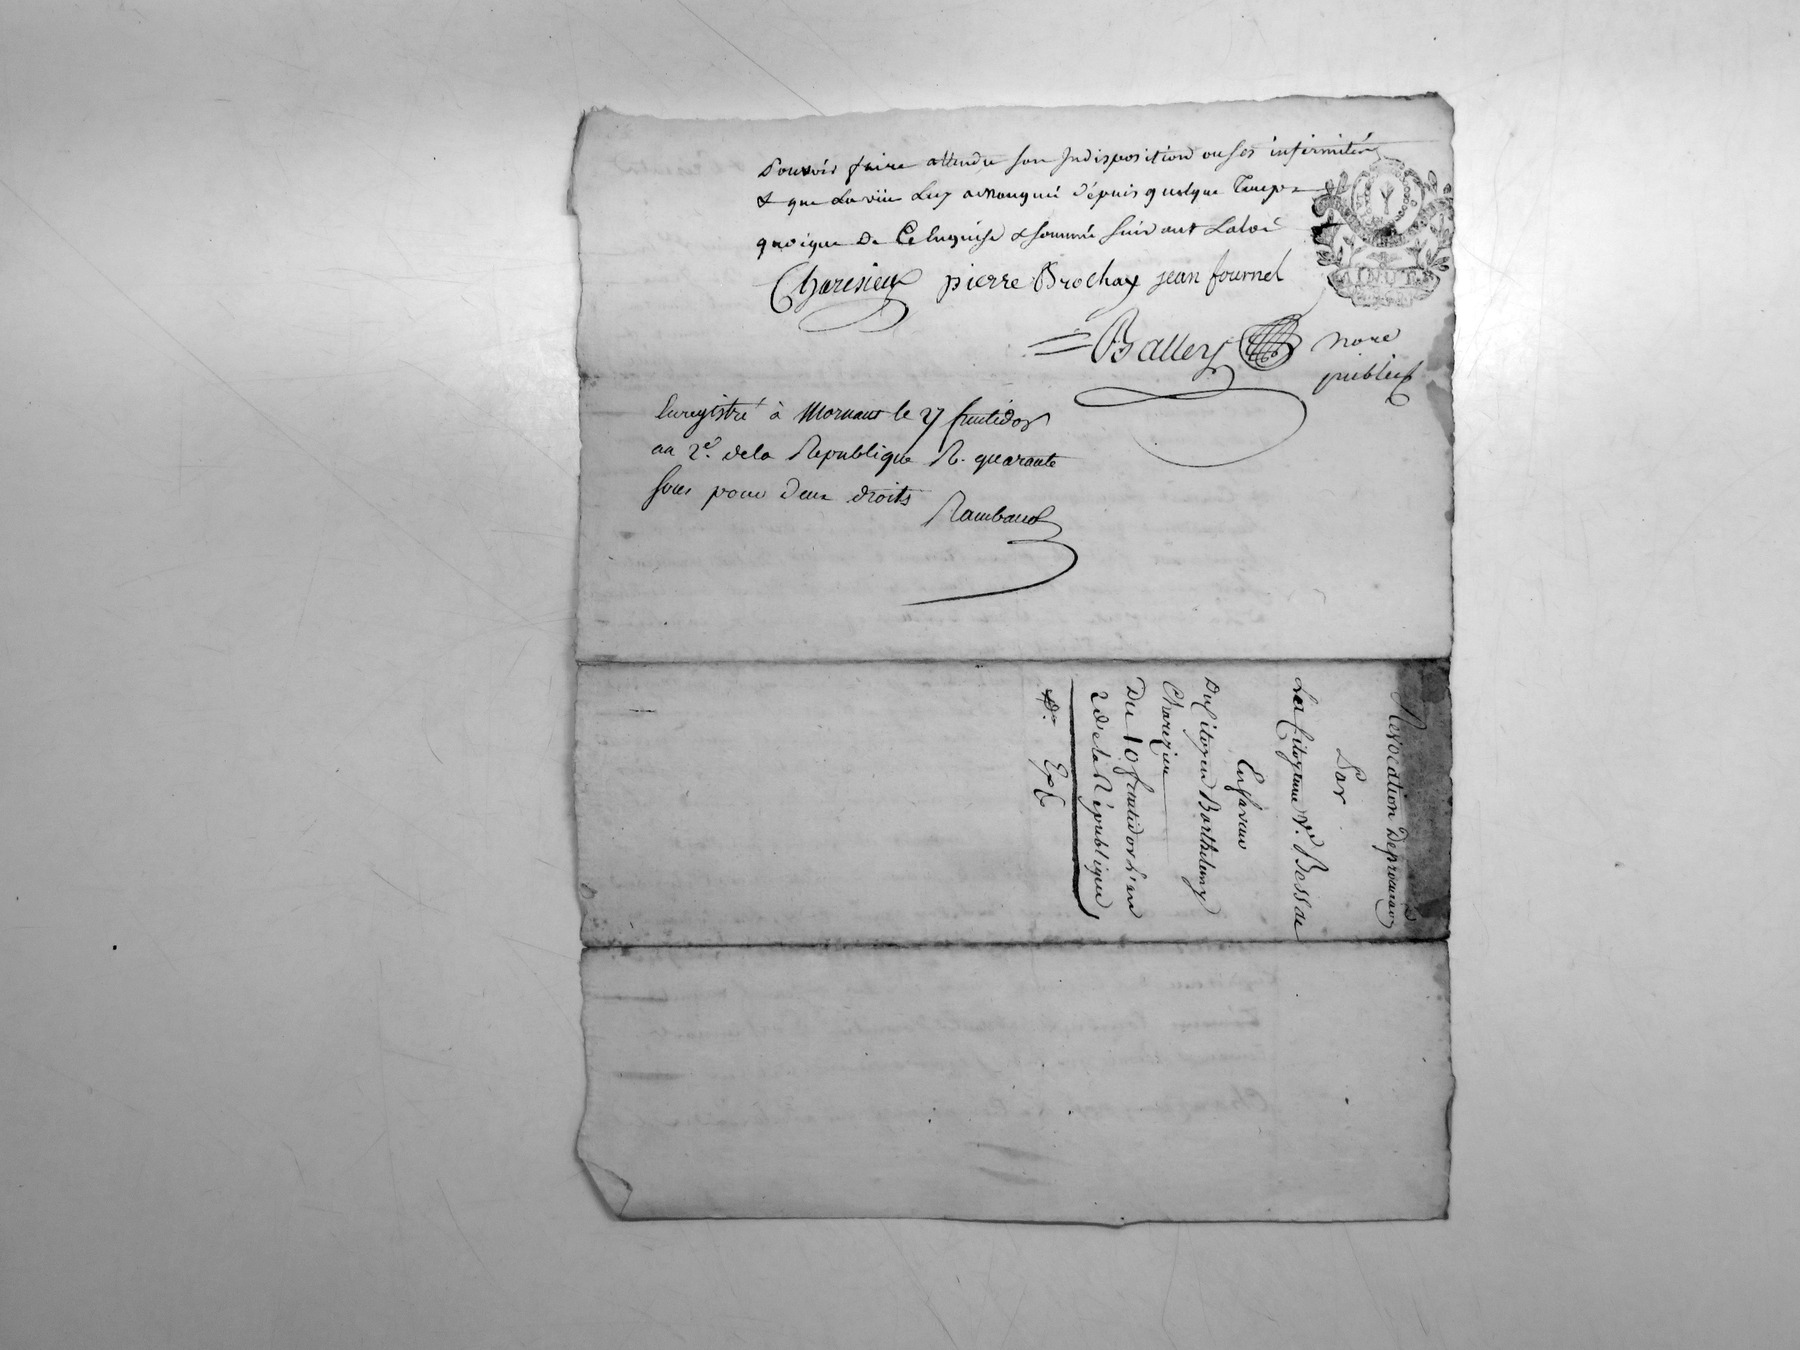 Pouvoir faire attendu son Indisposition ou ses infirmités
& que la vüe Luy a Manqué dépuis quelque Temps
quoique De Ce Enquise & sommé suivant La loi
Charesieux pierre Brochay jean fournel
Ballery nore
public
Enregistré à Mornant le 27 fructidor
an 2e. de la Republique R. quarante
sous pour deux droits
Rambaud
Révocation De procuration
Par
La Citoyenne Ve. Bessae
En faveur
Du Citoyen Barthelemy
Charezieu
Du 10 fructidor L'an
2 de la République